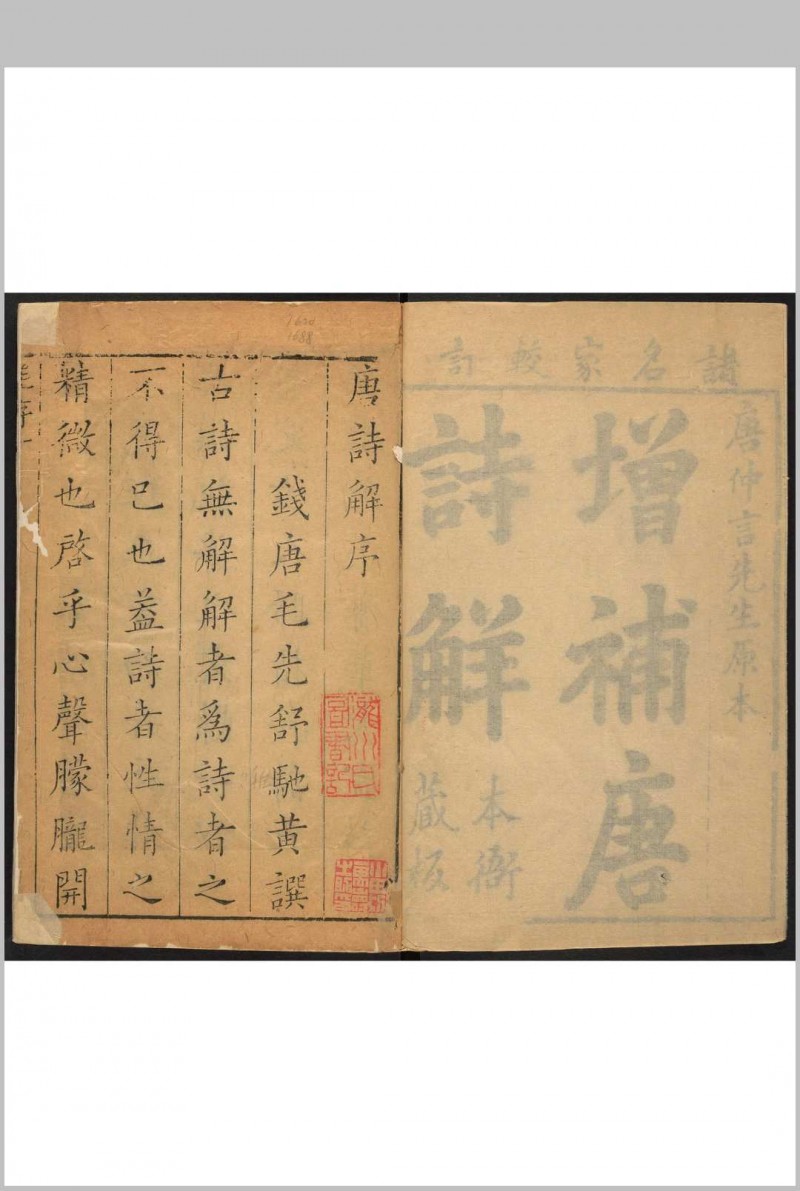 諸名家較訂
唐仲言先生原本
增補唐
詩解
本衙
藏板
唐詩解序
錢唐毛先舒馳黃譔
古詩無解解者爲詩者之
不得已也葢詩者性情之
精微也啓乎心聲朦朧開
1620
1688